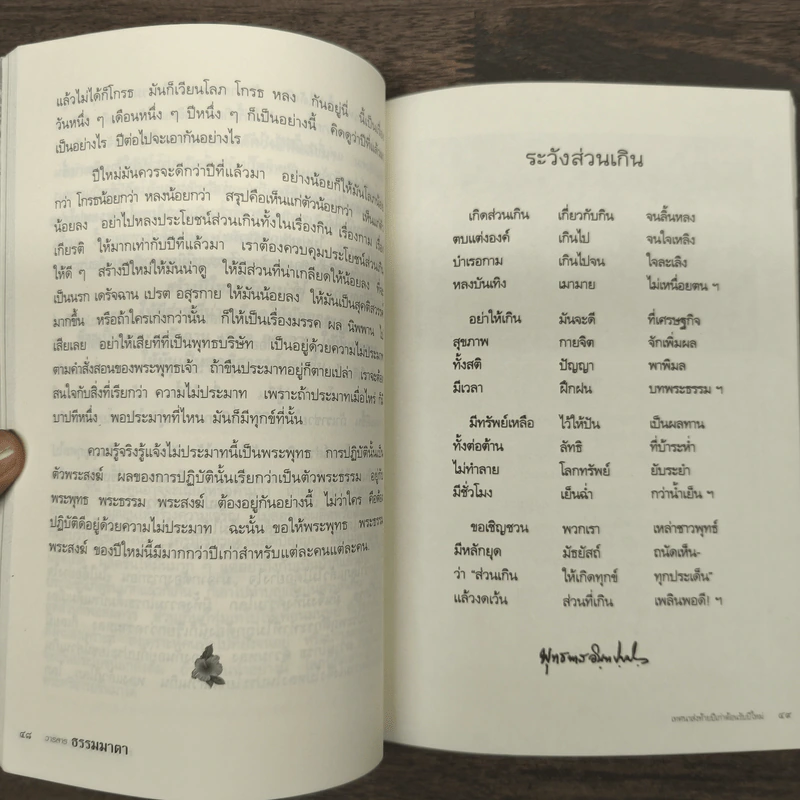 แล้วไม่ได้ก็โกรธ มันก็เวียนโลภ โกรธ หลง กันอยู่นี่ นี้เป็นเรื่อง
วันหนึ่ง ๆ เดือนหนึ่ง ๆ ปีหนึ่ง ๆ ก็เป็นอย่างนี้ คิดดูว่าปีที่แล้วมา
เป็นอย่างไร ปีต่อไปจะเอากันอย่างไร
ปีใหม่มันควรจะดีกว่าปีที่แล้วมา อย่างน้อยก็ให้มันโลภน้อย
กว่า โกรธน้อยกว่า หลงน้อยกว่า สรุปคือเห็นแก่ตัวน้อยกว่า เห็นแก่ตัว
น้อยลง อย่าไปหลงประโยชน์ส่วนเกินทั้งในเรื่องกิน เรื่องกาม เรื่อง
เกียรติ ให้มากเท่ากับปีที่แล้วมา เราต้องควบคุมประโยชน์ส่วนเกิน
ให้ดี ๆ สร้างปีใหม่ให้มันน่าดู ให้มีส่วนที่น่าเกลียดให้น้อยลง ที่จะ
เป็นนรก เดรัจฉาน เปรต อสุรกาย ให้มันน้อยลง ให้มันเป็นสุคติสวรรค์
มากขึ้น หรือถ้าใครเก่งกว่านั้น ก็ให้เป็นเรื่องมรรค ผล นิพพาน ไป
เสียเลย อย่าให้เสียทีที่เป็นพุทธบริษัท เป็นอยู่ด้วยความไม่ประมาท
ตามคำสั่งสอนของพระพุทธเจ้า ถ้าขืนประมาทอยู่ก็ตายเปล่า เราจะต้อง
สนใจกับสิ่งที่เรียกว่า ความไม่ประมาท เพราะถ้าประมาทเมื่อไหร่ ก็มี
บาปทีหนึ่ง พอประมาทที่ไหน มันก็มีทุกข์ที่นั้น
ความรู้จริงรู้แจ้งไม่ประมาทนี้เป็นพระพุทธ การปฏิบัตินั้นเป็น
ตัวพระสงฆ์ ผลของการปฏิบัตินั้นเรียกว่าเป็นตัวพระธรรม อยู่กับ
พระพุทธ พระธรรม พระสงฆ์ ต้องอยู่กันอย่างนี้ ไม่ว่าใคร คือต้อง
ปฏิบัติดีอยู่ด้วยความไม่ประมาท ฉะนั้น ขอให้พระพุทธ พระธรรม
พระสงฆ์ ของปีใหม่นี้มีมากกว่าปีเก่าสำหรับแต่ละคนแต่ละคน.
๔๘ วารสาร ธรรมมาตา
ระวังส่วนเกิน
เกิดส่วนเกิน เกี่ยวกับกิน จนลิ้นหลง
ตบแต่งองค์ เกินไป จนใจเหลิง
บำเรอกาม เกินไปจน ใจละเลิง
หลงบันเทิง เมามาย ไม่เหนื่อยตน ฯ
อย่าให้เกิน มันจะดี ที่เศรษฐกิจ
สุขภาพ กายจิต จักเพิ่มผล
ทั้งสติ ปัญญา พาพิมล
มีเวลา ฝึกฝน บทพระธรรม ฯ
มีทรัพย์เหลือ ไว้ให้ปัน เป็นผลทาน
ทั้งต่อต้าน ลัทธิ ที่บ้าระห่ำ
ไม่ทำลาย โลกทรัพย์ ยับระยำ
มีชั่วโมง เย็นฉ่ำ กว่าน้ำเย็น ฯ
ขอเชิญชวน พวกเรา เหล่าชาวพุทธ์
มีหลักยุด มัธยัสถ์ ถนัดเห็น-
ว่า "ส่วนเกิน ให้เกิดทุกข์ ทุกประเด็น"
แล้วงดเว้น ส่วนที่เกิน เพลินพอดี! ฯ
พุทธทาส อินฺทปญฺโญ
เทศนาส่งท้ายปีเก่าต้อนรับปีใหม่ ๔๙